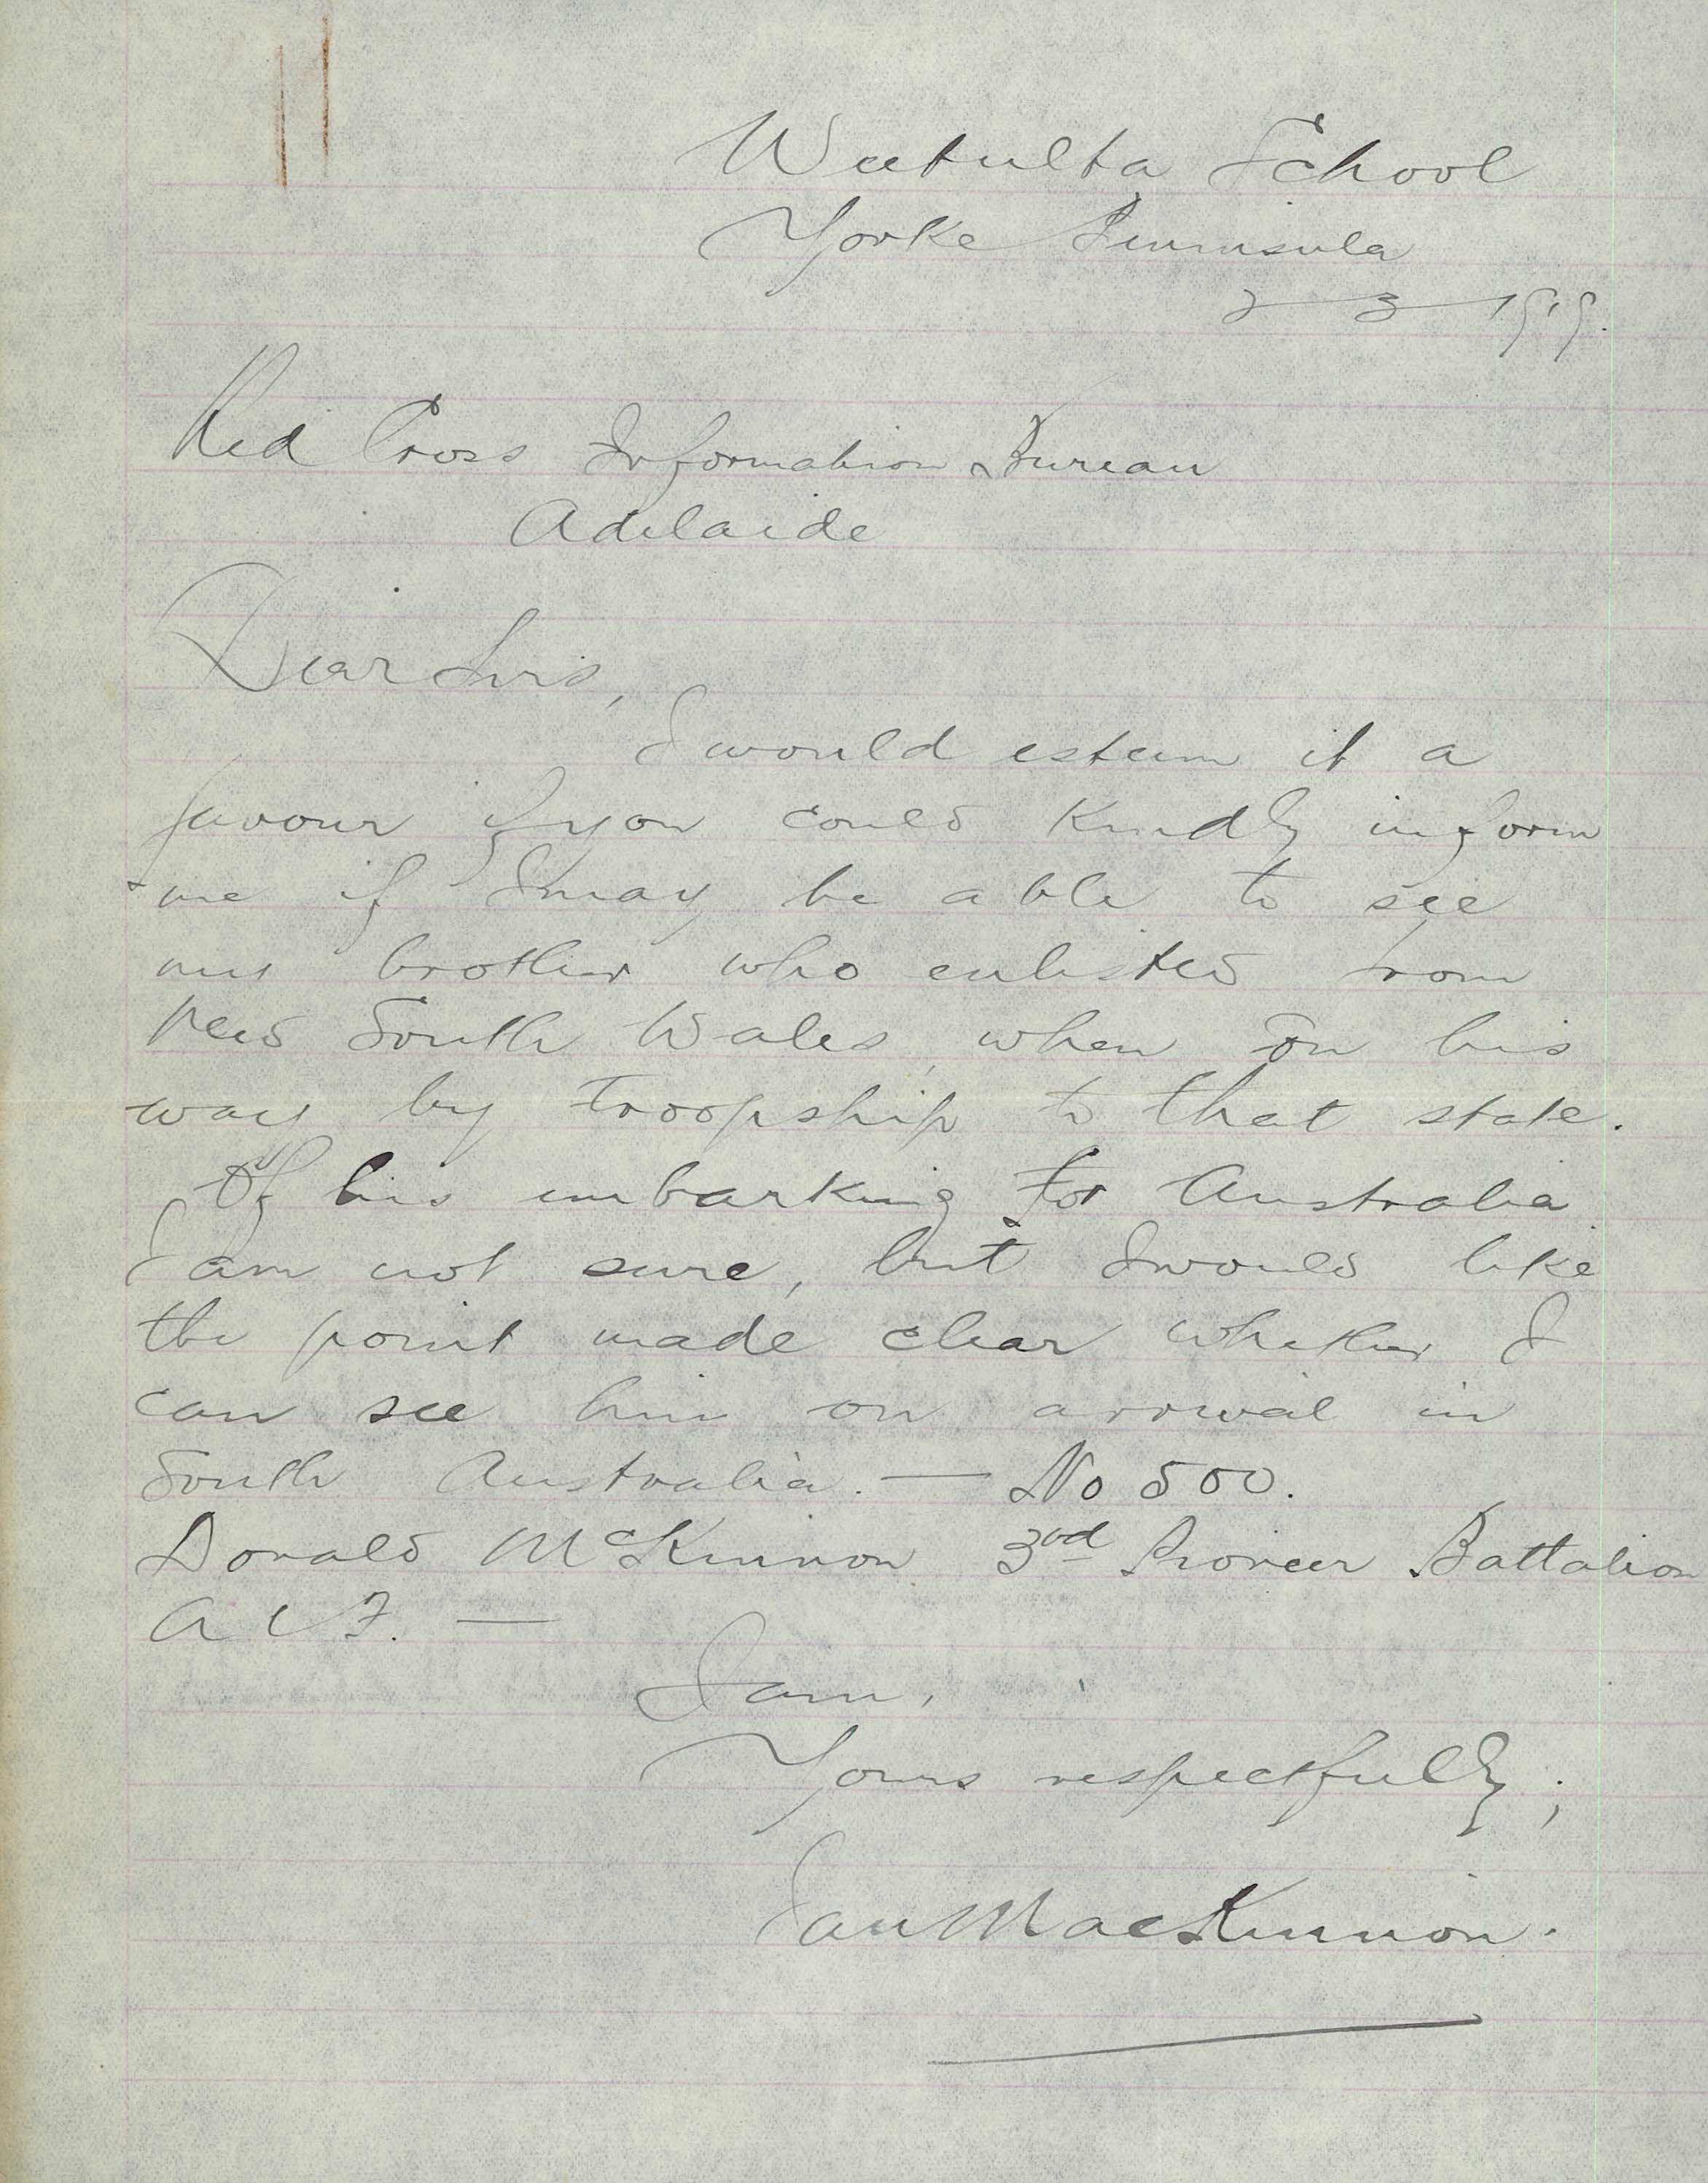 Weetulta School
Yorke Peninsula
2-3-1919.
Red Cross Information Bureau
Adelaide
Dear Sirs,
I would esteem it a
favour if you could kindly inform
me if I may be able to see
my brother who enlisted from
New South Wales, when on his
way by troopship to that state.
Of his embarking for Australia
I am not sure, but I would like
the point made clear whether I
can see him on arrival in
South Australia. — No 500.
Donald McKinnon 3rd Pioneer Battalion
A I F. —
I am,
Yours respectfully,
Ian MacKinnon.